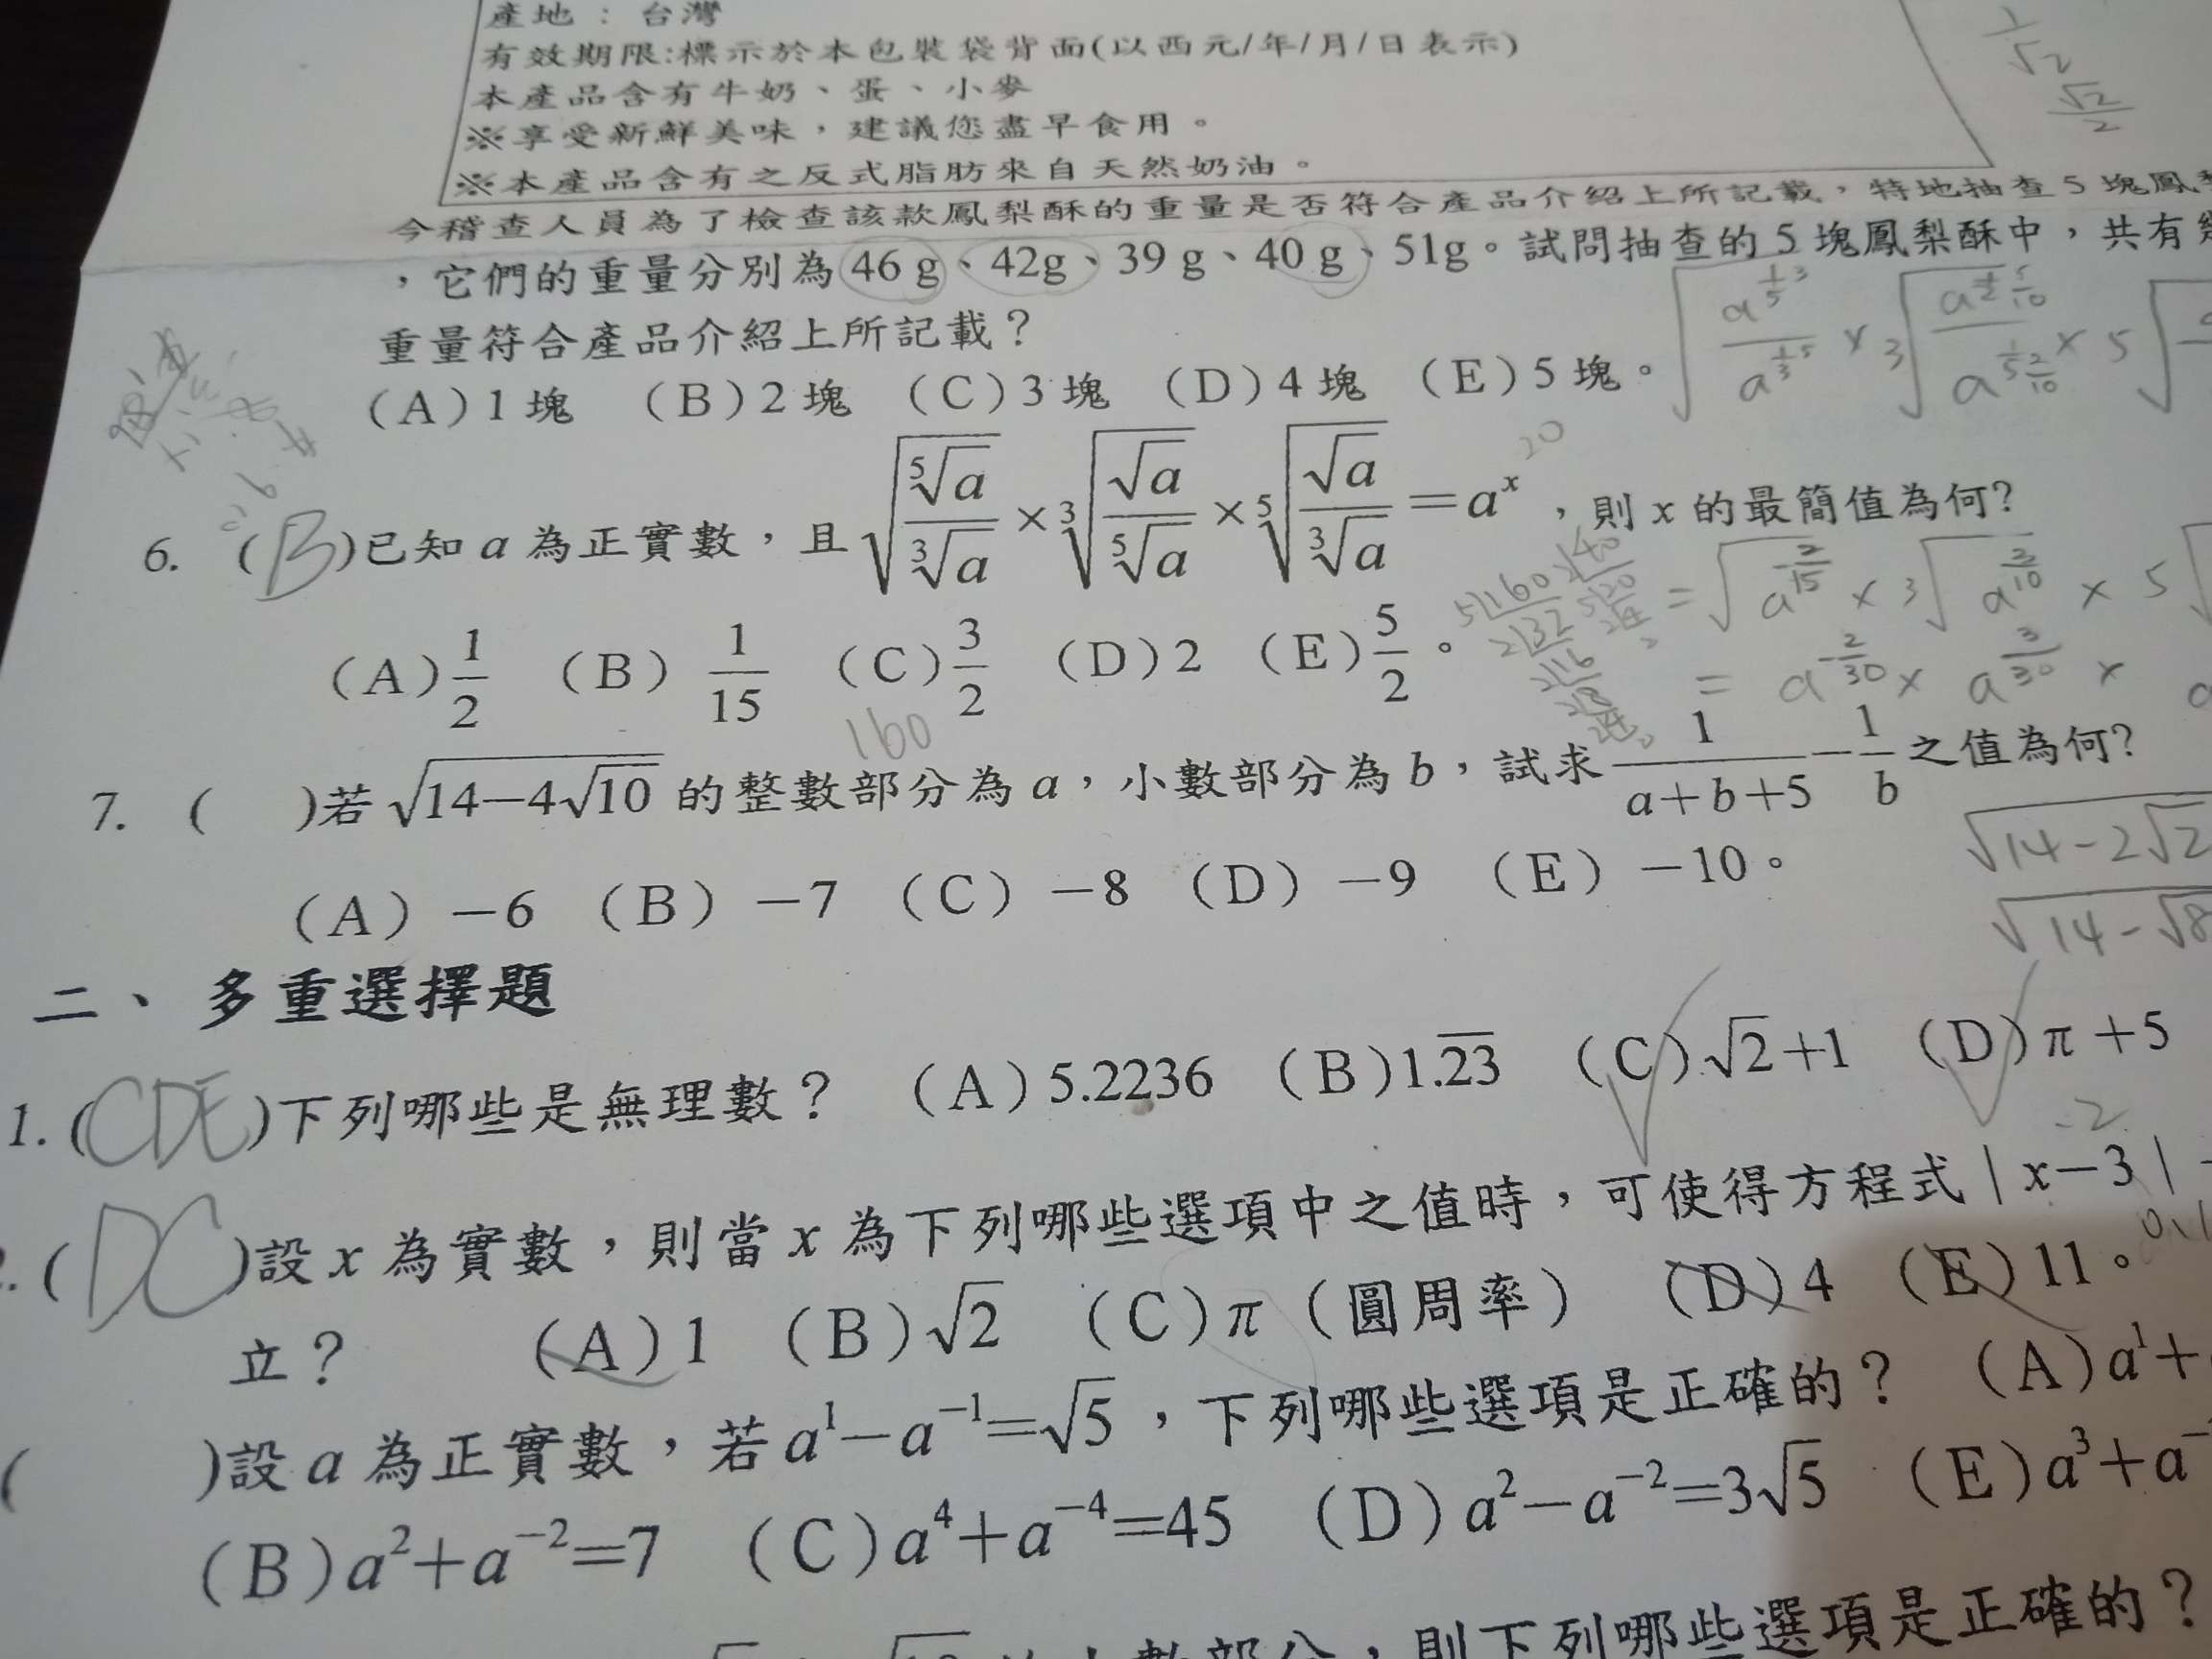 產地：台灣
有效期限:標示於本包裝袋背面(以西元/年/月/日表示)
本產品含有牛奶、蛋、小麥
※享受新鮮美味，建議您盡早食用。
※本產品含有之反式脂肪來自天然奶油。
今稽查人員為了檢查該款鳳梨酥的重量是否符合產品介紹上所記載，特地抽查5塊鳳
，它們的重量分別為46 g、42g、39 g、40 g、51g。試問抽查的5塊鳳梨酥中，共有
重量符合產品介紹上所記載？
(A)1塊 (B)2塊 (C)3塊 (D)4塊 (E)5塊。
6. (B)已知a為正實數，且√(⁵√a/³√a)×³√(√a/⁵√a)×⁵√(√a/³√a)=aˣ，則x的最簡值為何?
(A)1/2 (B)1/15 (C)3/2 (D)2 (E)5/2。
160
7. ( )若√(14−4√10)的整數部分為a，小數部分為b，試求1/(a+b+5)−1/b之值為何?
(A)−6 (B)−7 (C)−8 (D)−9 (E)−10。
二、多重選擇題
1.(CDE)下列哪些是無理數？ (A)5.2236 (B)1.2̅3̅ (C)√2+1 (D)π+5
(DC)設x為實數，則當x為下列哪些選項中之值時，可使得方程式|x−3|
立？ (A)1 (B)√2 (C)π（圓周率） (D)4 (E)11。
( )設a為正實數，若a¹−a⁻¹=√5，下列哪些選項是正確的？ (A)a¹+
(B)a²+a⁻²=7 (C)a⁴+a⁻⁴=45 (D)a²−a⁻²=3√5 (E)a³+a⁻
數部分，則下列哪些選項是正確的？